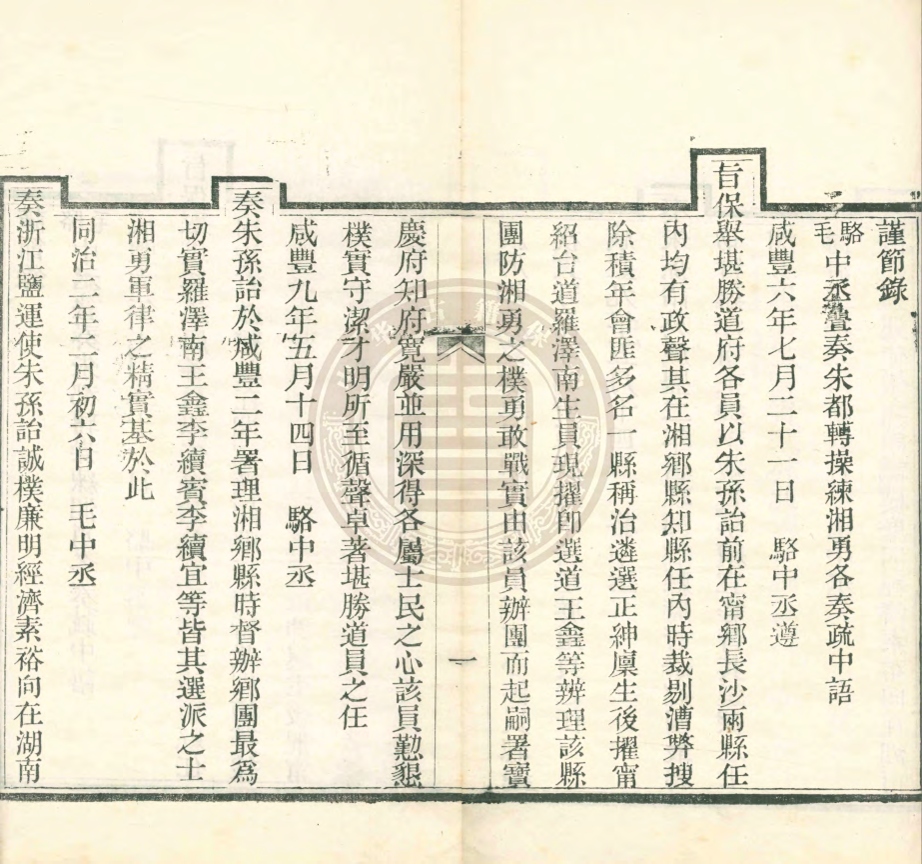 謹節錄
駱毛中丞疊奏朱都轉操練湘勇各奏疏中語
咸豐六年七月二十一日　駱中丞遵
旨保舉堪勝道府各員以朱孫詒前在甯鄉長沙兩縣任
內均有政聲其在湘鄉縣知縣任內時裁剔漕弊搜
除積年會匪多名一縣稱治遴選正紳廩生後擢甯
紹台道羅澤南生員現擢卽選道王鑫等辨理該縣
團防湘勇之樸勇敢戰實由該員辦團而起嗣署寶
一
慶府知府寬嚴並用深得各屬士民之心該員勤懇
樸實守潔才明所至循聲卓著堪勝道員之任
咸豐九年五月十四日　駱中丞
奏朱孫詒於咸豐二年署理湘鄉縣時督辦鄉團最爲
切實羅澤南王鑫李續賓李續宜等皆其選派之士
湘勇軍律之精實基於此
同治二年二月初六日　毛中丞
奏浙江鹽運使朱孫詒誠樸廉明經濟素裕向在湖南